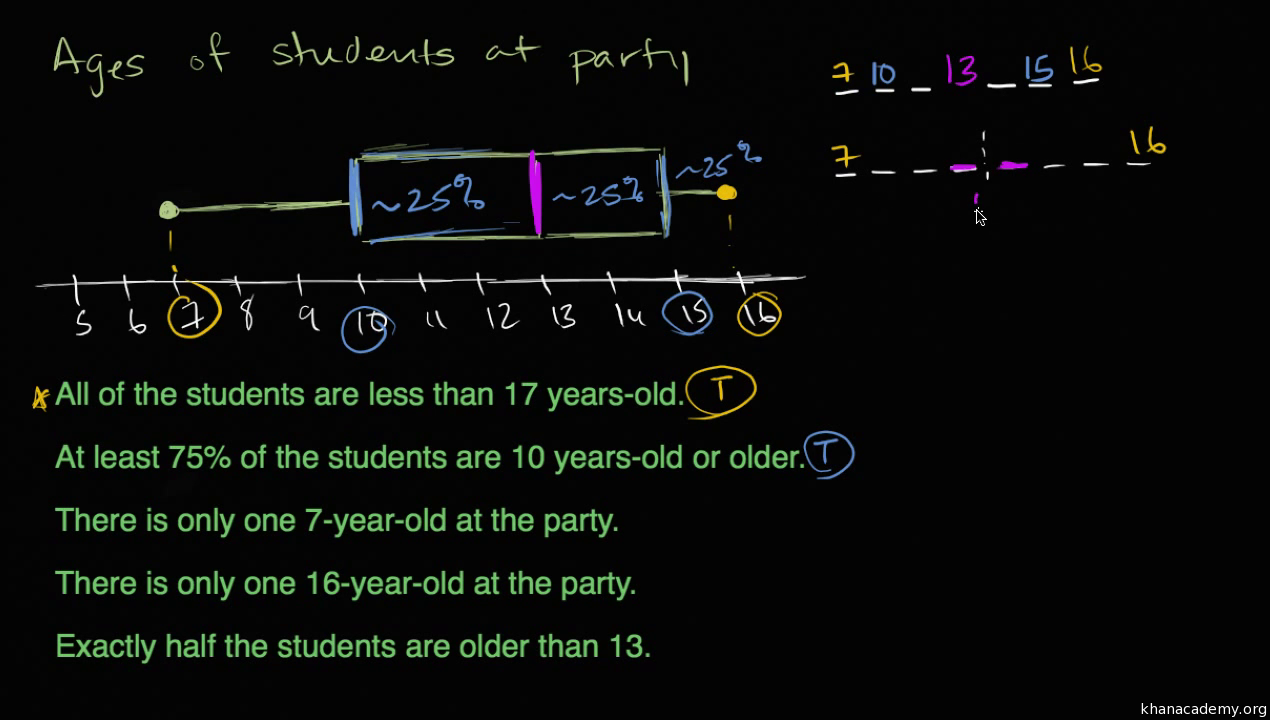 Ages of students at party
7 10 _ 13 _ 15 16
7 _ _ _ _ _ _ 16
~25% ~25% ~25%
5 6 7 8 9 10 11 12 13 14 15 16
All of the students are less than 17 years-old. T
At least 75% of the students are 10 years-old or older. T
There is only one 7-year-old at the party.
There is only one 16-year-old at the party.
Exactly half the students are older than 13.
khanacademy.org